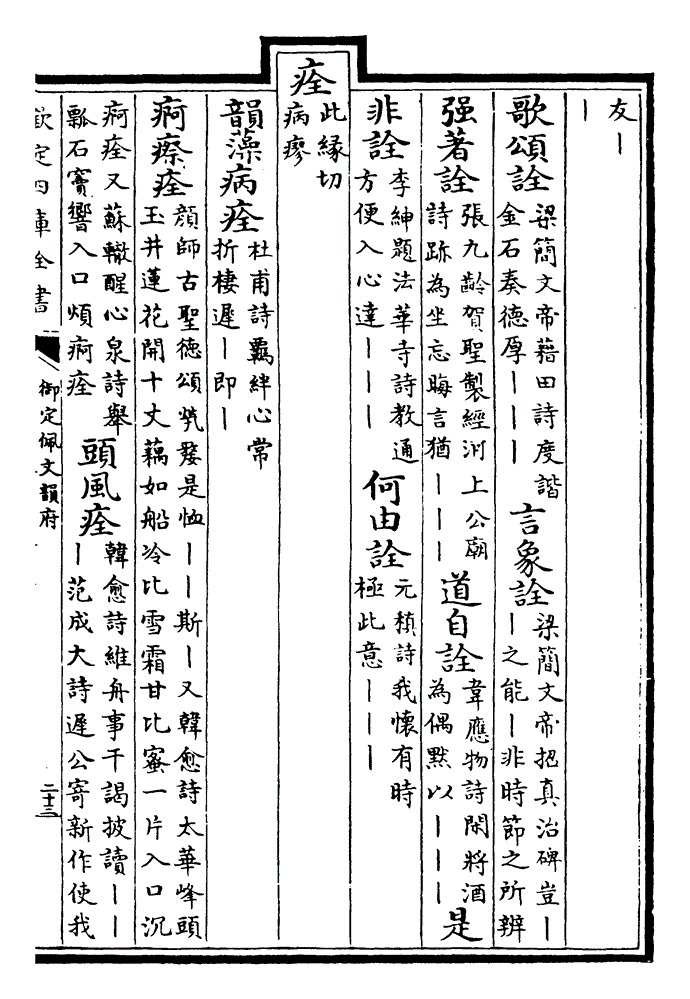 友｜
｜
歌頌詮
梁簡文帝藉田詩度諧
金石奏德厚｜｜｜
言象詮
梁簡文帝招真治碑豈｜
｜之能｜非時節之所辨
强著詮
張九齡賀聖製經河上公廟
詩跡為坐忘晦言猶｜｜｜
道自詮
韋應物詩閑將酒
為偶默以｜｜｜
是
非詮
李紳題法華寺詩教通
方便入心達｜｜｜
何由詮
元稹詩我懷有時
極此意｜｜｜
痊
此緣切
病瘳
韻藻病痊
杜甫詩羈絆心常
折棲遲｜即｜
痾瘵痊
顏師古聖德頌煢嫠是恤｜｜斯｜又韓愈詩太華峰頭
玉井蓮花開十丈藕如船冷比雪霜甘比蜜一片入口沉
痾痊又蘇轍醒心泉詩舉
瓢石竇響入口煩痾痊
頭風痊
韓愈詩維舟事干謁披讀｜｜
｜范成大詩遲公寄新作使我
欽定四庫全書
御定佩文韻府
二十三